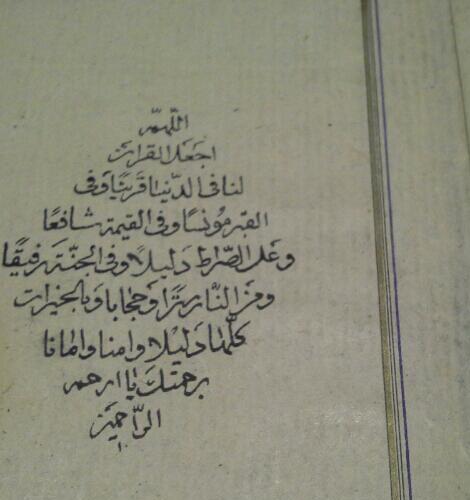 اللهم
اجعل القران
لنا فى الدنيا قرينا وفى
القبر مونسا وفى القيمة شافعا
وعلى الصراط دليلا وفى الجنة رفيقا
ومن النار سترا وحجابا وبالخيرات
كلها دليلا وامنا وامانا
برحمتك يا ارحم
الراحمين